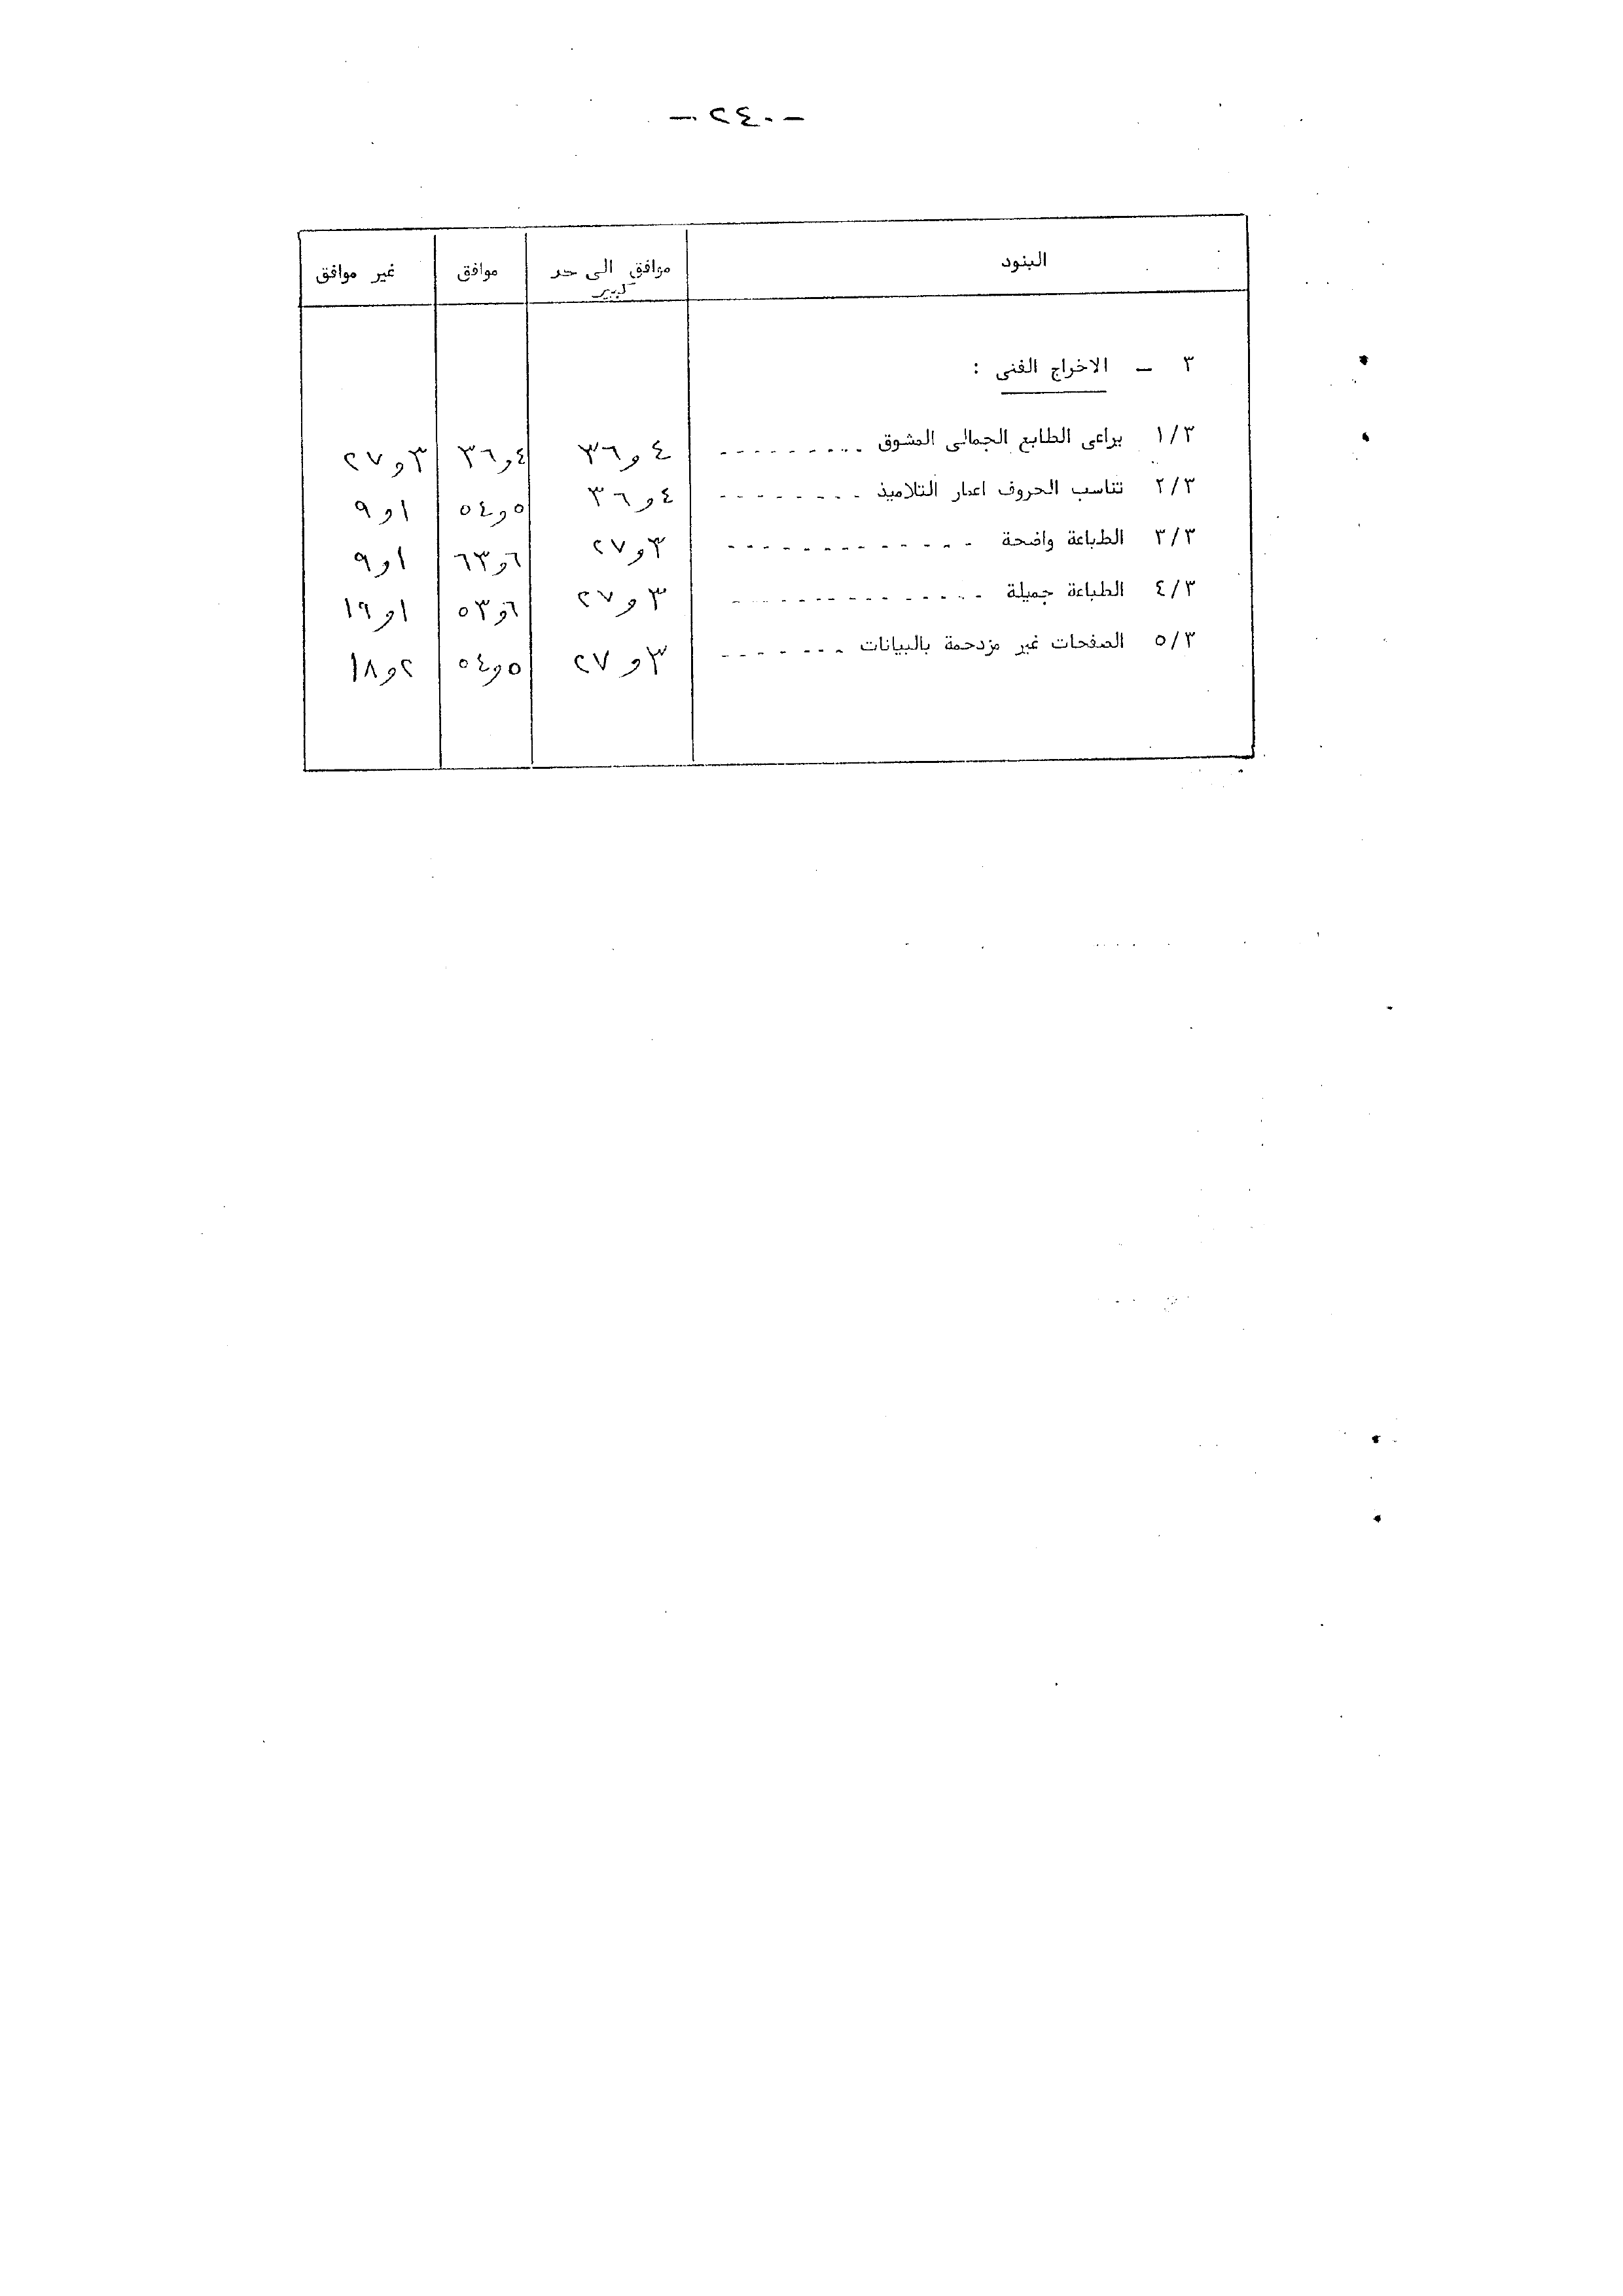 - ٢٤٠ -
البنود | موافق الى حد كبير | موافق | غير موافق
٣ - الاخراج الفنى :
١/٣ يراعى الطابع الجمالى المشوق --------- ٤و٣٦ | ٤و٣٦ | ٣و٢٧
٢/٣ تناسب الحروف اعمار التلاميذ -------- ٤و٣٦ | ٥و٥٤ | ١و٩
٣/٣ الطباعة واضحة ------------- ٣و٢٧ | ٦و٦٣ | ١و٩
٤/٣ الطباعة جميلة ------------- ٣و٢٧ | ٦و٥٣ | ١و١٩
٥/٣ الصفحات غير مزدحمة بالبيانات ------- ٣و٢٧ | ٥و٥٤ | ٢و١٨